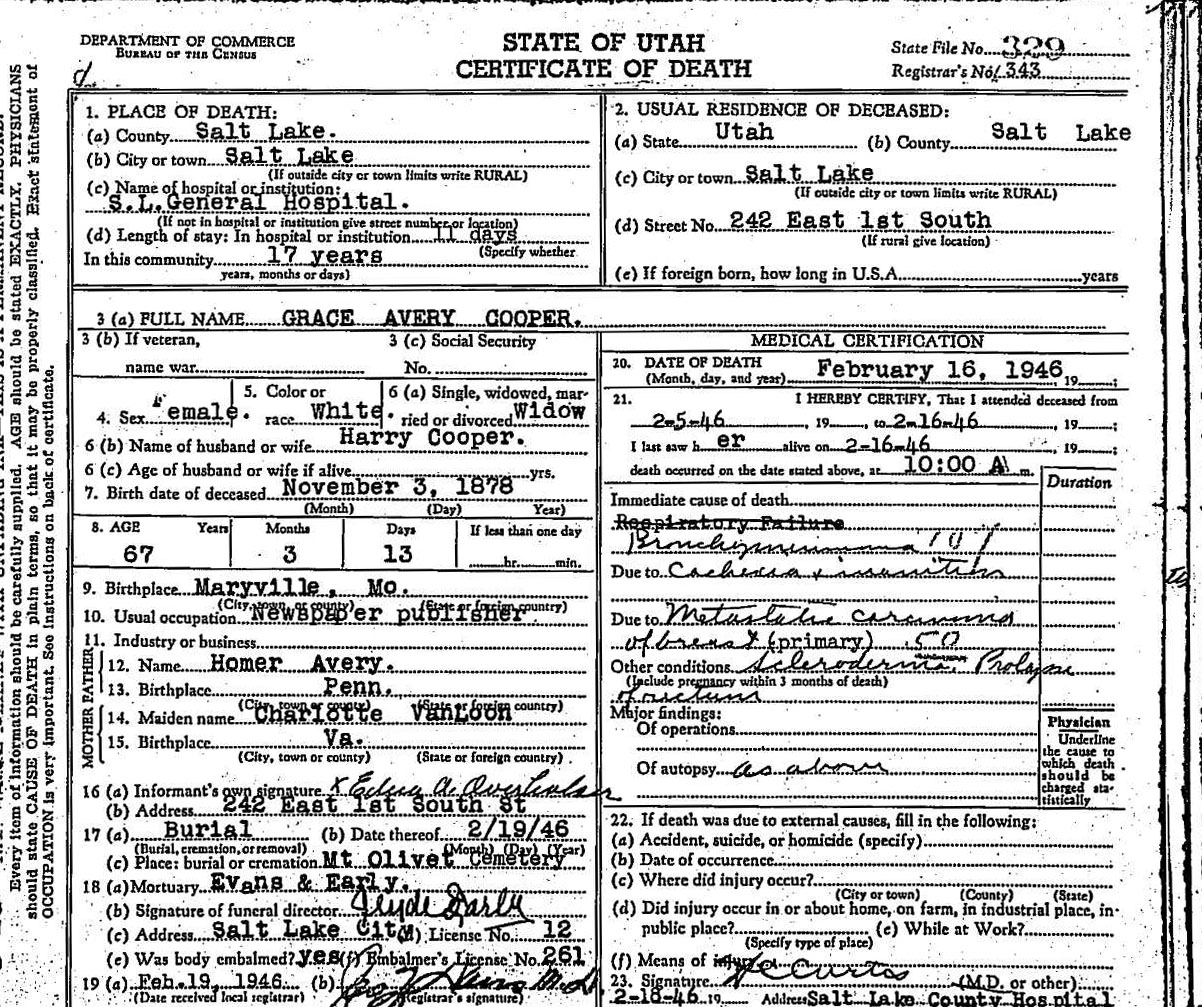 DEPARTMENT OF COMMERCE
BUREAU OF THE CENSUS
STATE OF UTAH
CERTIFICATE OF DEATH
State File No. 329
Registrar's No. 343
Every item of information should be carefully supplied. AGE should be stated EXACTLY. PHYSICIANS
should state CAUSE OF DEATH in plain terms, so that it may be properly classified. Exact statement of
OCCUPATION is very important. See instructions on back of certificate.
1. PLACE OF DEATH:
(a) County Salt Lake.
(b) City or town Salt Lake
(If outside city or town limits write RURAL)
(c) Name of hospital or institution:
S.L.General Hospital.
(If not in hospital or institution give street number or location)
(d) Length of stay: In hospital or institution 11 days
(Specify whether
In this community 17 years
years, months or days)
2. USUAL RESIDENCE OF DECEASED:
(a) State Utah (b) County Salt Lake
(c) City or town Salt Lake
(If outside city or town limits write RURAL)
(d) Street No. 242 East 1st South
(If rural give location)
(e) If foreign born, how long in U.S.A. years
3 (a) FULL NAME GRACE AVERY COOPER.
3 (b) If veteran, 3 (c) Social Security
name war No.
4. Sex Female. 5. Color or race White. 6 (a) Single, widowed, mar-
ried or divorced Widow
6 (b) Name of husband or wife Harry Cooper.
6 (c) Age of husband or wife if alive yrs.
7. Birth date of deceased November 3, 1878
(Month) (Day) Year)
8. AGE Years Months Days If less than one day
67 3 13 hr. min.
9. Birthplace Maryville, Mo.
(City, town, or county) (State or foreign country)
10. Usual occupation Newspaper publisher.
11. Industry or business
FATHER
12. Name Homer Avery.
13. Birthplace Penn.
(City, town or county) (State or foreign country)
MOTHER
14. Maiden name Charlotte VanLoon
15. Birthplace Va.
(City, town or county) (State or foreign country)
16 (a) Informant's own signature x Edna A. Overholser
(b) Address 242 East 1st South St
17 (a) Burial (b) Date thereof 2/19/46
(Burial, cremation, or removal) (Month) (Day) (Year)
(c) Place: burial or cremation Mt Olivet Cemetery
18 (a) Mortuary Evans & Early.
(b) Signature of funeral director
(c) Address Salt Lake City License No. 12
(e) Was body embalmed? yes (f) Embalmer's License No. 261
19 (a) Feb.19, 1946 (b)
(Date received local registrar) Registrar's signature)
MEDICAL CERTIFICATION
20. DATE OF DEATH
(Month, day, and year) February 16, 1946, 19 ;
21. I HEREBY CERTIFY, That I attended deceased from
2-5-46, 19 , to 2-16-46, 19 ;
I last saw h er alive on 2-16-46, 19 ;
death occurred on the date stated above, at 10:00 A m.
Duration
Immediate cause of death
Respiratory Failure
107
Due to Cachexia & inanition
Due to Metastatic carcinoma
of breast (primary) 50
Other conditions Scleroderma. Prolapse
(Include pregnancy within 3 months of death)
of rectum
Major findings:
Of operations
Of autopsy as above
Physician
Underline
the cause to
which death
should be
charged sta-
tistically
22. If death was due to external causes, fill in the following:
(a) Accident, suicide, or homicide (specify)
(b) Date of occurrence
(c) Where did injury occur?
(City or town) (County) (State)
(d) Did injury occur in or about home, on farm, in industrial place, in-
public place? (e) While at Work?
(Specify type of place)
(f) Means of injury
23. Signature Curtis (M.D. or other)
2-18-46 19 Address Salt Lake County Hospital